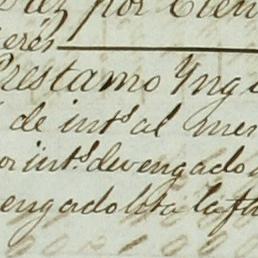 Diez por Cien
erés
Prestamo Yng
de int.s al mes
or int.s devengado
engado hta la fh